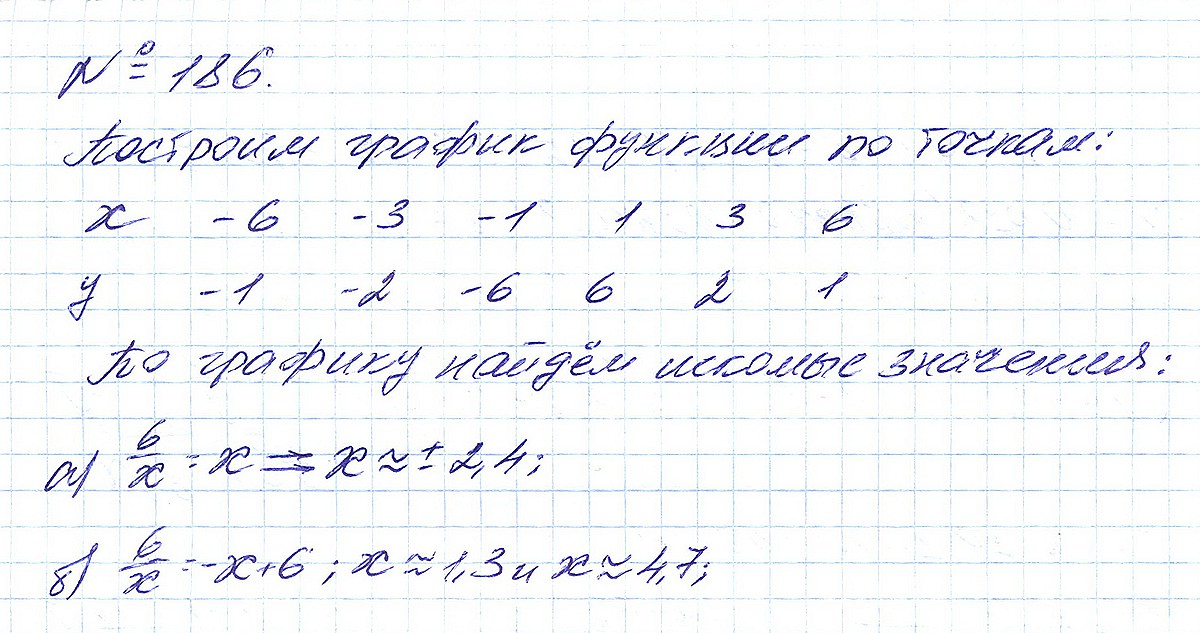 № 186.
Построим график функции по точкам:
x -6 -3 -1 1 3 6
y -1 -2 -6 6 2 1
По графику найдём искомые значения:
а) 6/x = x ⇒ x ≈ ± 2,4;
б) 6/x = -x+6; x ≈ 1,3 и x ≈ 4,7;